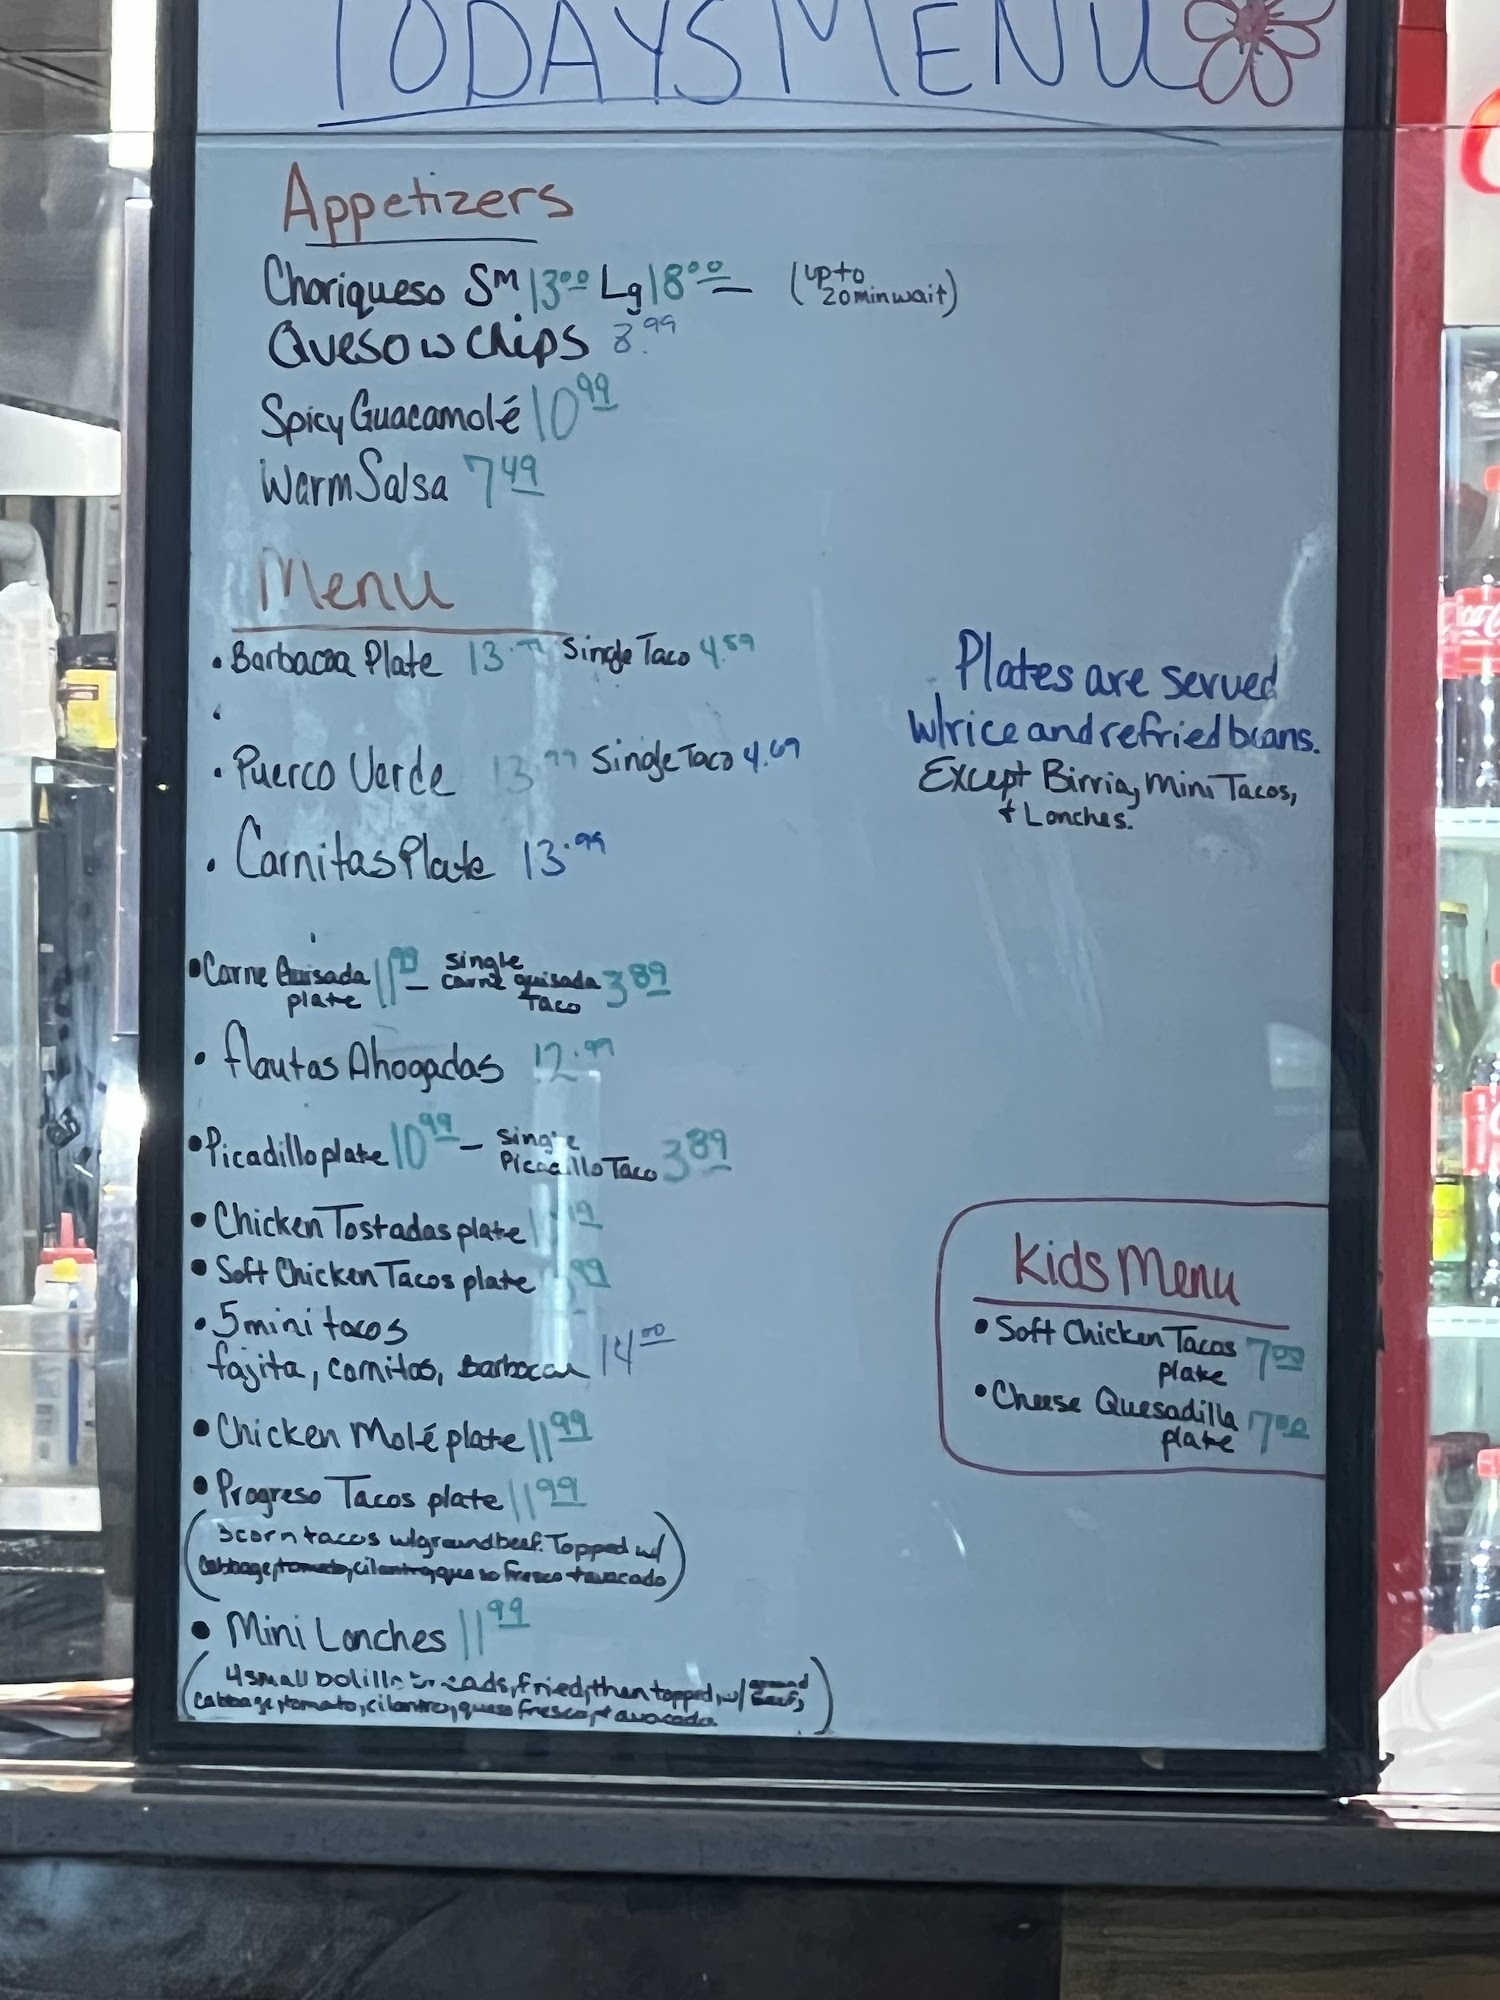 TODAYS MENU
Appetizers
Choriqueso Sm 13.00 Lg 18.00 (up to 20 min wait)
Queso w chips 8.99
Spicy Guacamolé 10.99
Warm Salsa 7.49
Menu
• Barbacoa Plate 13.99 Single Taco 4.59
•
• Puerco Verde 13.99 Single Taco 4.69
• Carnitas Plate 13.99
• Carne Guisada plate 11.99 – single carne guisada Taco 3.89
• flautas Ahogadas 12.99
• Picadillo plate 10.99 – single Picadillo Taco 3.89
• Chicken Tostadas plate
• Soft Chicken Tacos plate
• 5 mini tacos
fajita, carnitas, Barbacoa 14.00
• Chicken Molé plate 11.99
• Progreso Tacos plate 11.99
(3 corn tacos w/ground beef. Topped w/
cabbage, tomato, cilantro, queso fresco + avocado)
• Mini Lonches 11.99
(4 small bolillo breads, fried, then topped w/ ground beef,
cabbage, tomato, cilantro, queso fresco, + avocado)
Plates are served
w/rice and refried beans.
Except Birria, Mini Tacos,
+ Lonches.
Kids Menu
• Soft Chicken Tacos
plate 7.00
• Cheese Quesadilla
plate 7.00